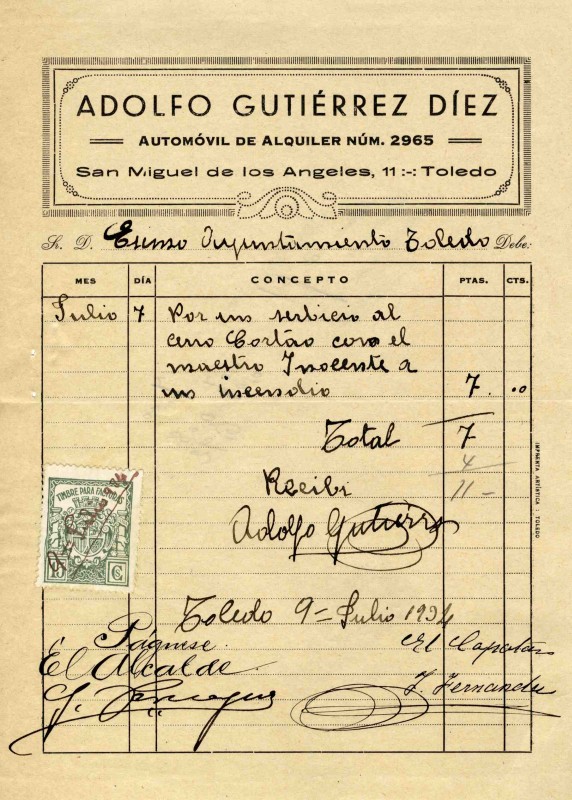 ADOLFO GUTIÉRREZ DÍEZ
AUTOMÓVIL DE ALQUILER NÚM. 2965
San Miguel de los Angeles, 11 :-: Toledo
Sr. D. Exmo Ayuntamiento Toledo Debe:
MES DÍA CONCEPTO PTAS. CTS.
Julio 7 Por un serbicio al
cerro Cortao con el
maestro Inocente a
un incendio 7. ..
Total 7
4
Recibi 11 -
Adolfo Gutierrez
TIMBRE PARA FACTURAS
10 Cs
IMPRENTA ARTÍSTICA : TOLEDO
Toledo 9 = Julio 1934
Páguese El Capataz
El Alcalde
J. Fernandez